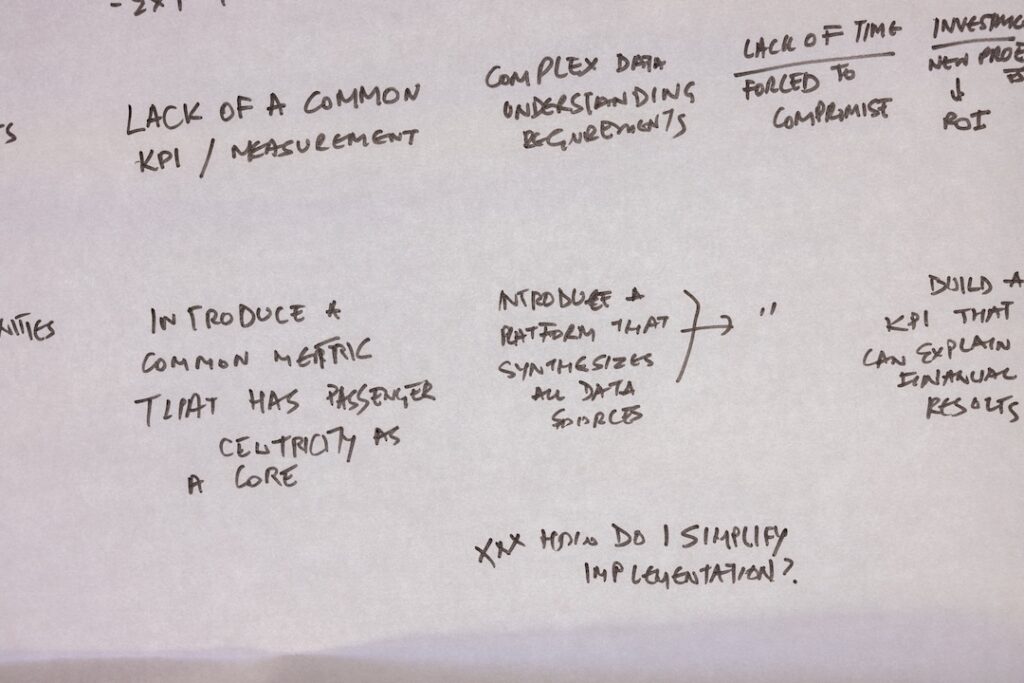 LACK OF A COMMON
KPI / MEASUREMENT
COMPLEX DATA
UNDERSTANDING
REQUIREMENTS
LACK OF TIME
FORCED TO
COMPROMISE
NEW
↓
ROI
INTRODUCE A
COMMON METRIC
THAT HAS PASSENGER
CENTRICITY AS
A CORE
INTRODUCE A
PLATFORM THAT
SYNTHESIZES
ALL DATA
SOURCES
→ "
BUILD A
KPI THAT
CAN EXPLAIN
FINANCIAL
RESULTS
XXX HOW DO I SIMPLIFY
IMPLEMENTATION?